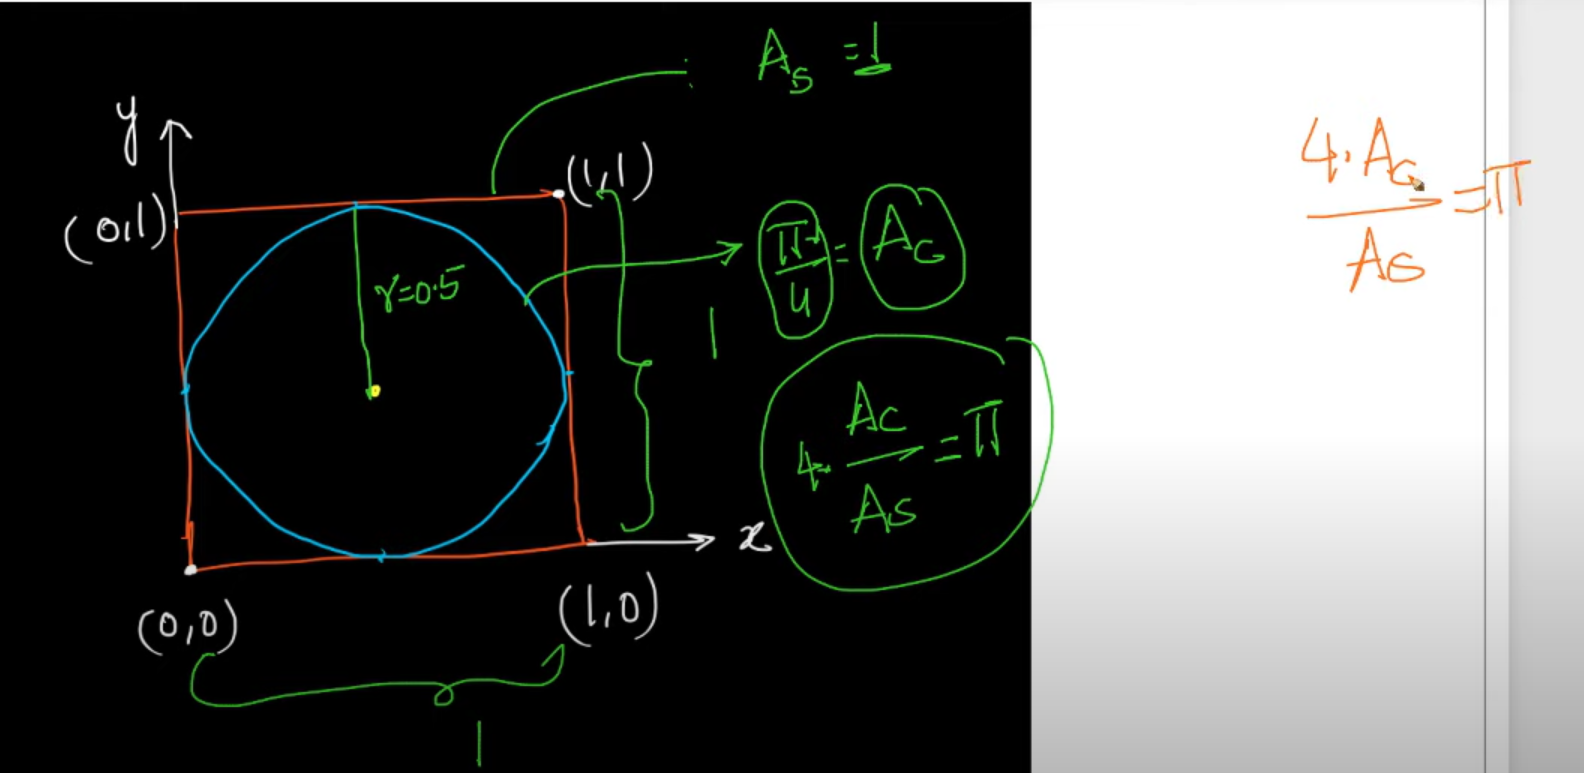 A_S = 1
y
(1,1)
(0,1)
r=0.5
π/4 = A_C
1
4. A_C/A_S = π
x
(0,0)
(1,0)
1
4. A_C/A_S = π